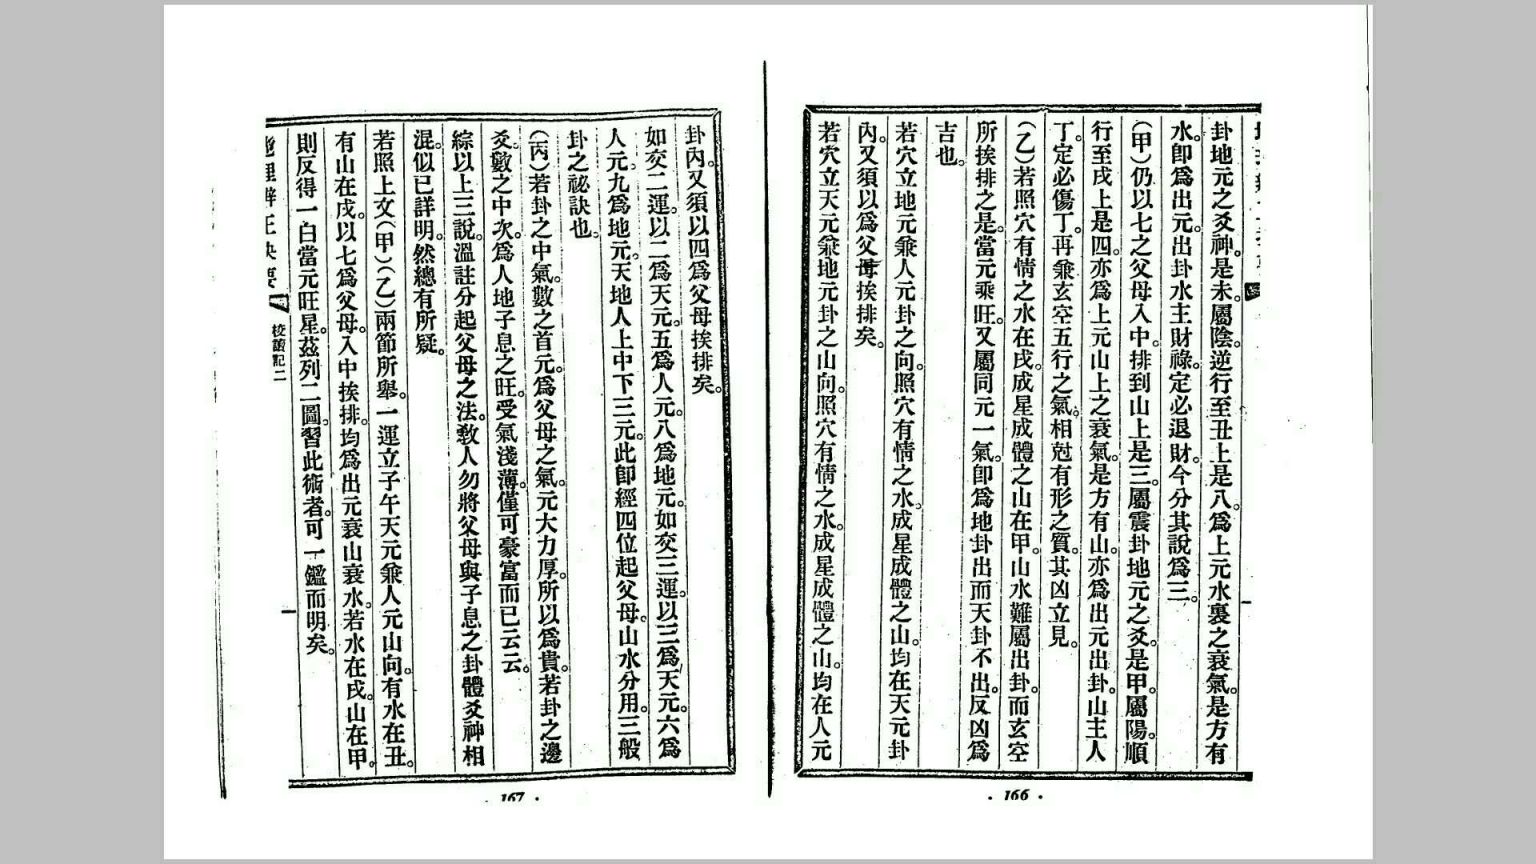 卦地元之爻神。是未。屬陰。逆行至丑上是八。為上元水裏之衰氣。是方有
水。即為出元。出卦水主財祿。定必退財。今分其說為三。
(甲)仍以七之父母入中。排到山上是三。屬震卦地元之爻。是甲。屬陽。順
行至戌上是四。亦為上元山上之衰氣。是方有山。亦為出元出卦。山主人
丁。定必傷丁。再兼玄空五行之氣。相尅有形之質。其凶立見。
(乙)若照穴有情之水在戌。成星成體之山在甲。山水難屬出卦。而玄空
所挨排之是。當元乘旺。又屬同元一氣。即為地卦出而天卦不出。反凶為
吉也。
若穴立地元兼人元卦之向。照穴有情之水。成星成體之山。均在天元卦
內。又須以為父母挨排矣。
若穴立天元兼地元卦之山向。照穴有情之水。成星成體之山。均在人元
· 166 ·
卦內。又須以四為父母挨排矣。
如交二運。以二為天元。五為人元。八為地元。如交三運。以三為天元。六為
人元。九為地元。天地人上中下三元。此即經四位起父母。山水分用。三般
卦之祕訣也。
(丙)若卦之中氣。數之首元。為父母之氣。元大力厚。所以為貴。若卦之邊
爻。數之中次。為人地子息之旺。受氣淺薄。僅可豪富而已云云。
綜以上三說。溫註分起父母之法。教人勿將父母與子息之卦體爻神相
混。似已詳明。然總有所疑。
若照上文(甲)(乙)兩節所舉。一運立子午天元兼人元山向。有水在丑。
有山在戌。以七為父母。入中挨排。均為出元衰山衰水。若水在戌。山在甲。
則反得一白當元旺星。茲列二圖。習此術者。可一鑑而明矣。
地理辨正抉要 校讀記二 一
· 167 ·